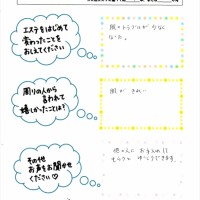 エステをはじめて
変わったことを
おしえてください
肌のトラブルが少なく
なった。
周りの人から
言われて
嬉しかったことは?
肌が きれい
その他
お声をお聞かせ
ください♡
他の人に お手入れして
もらうと